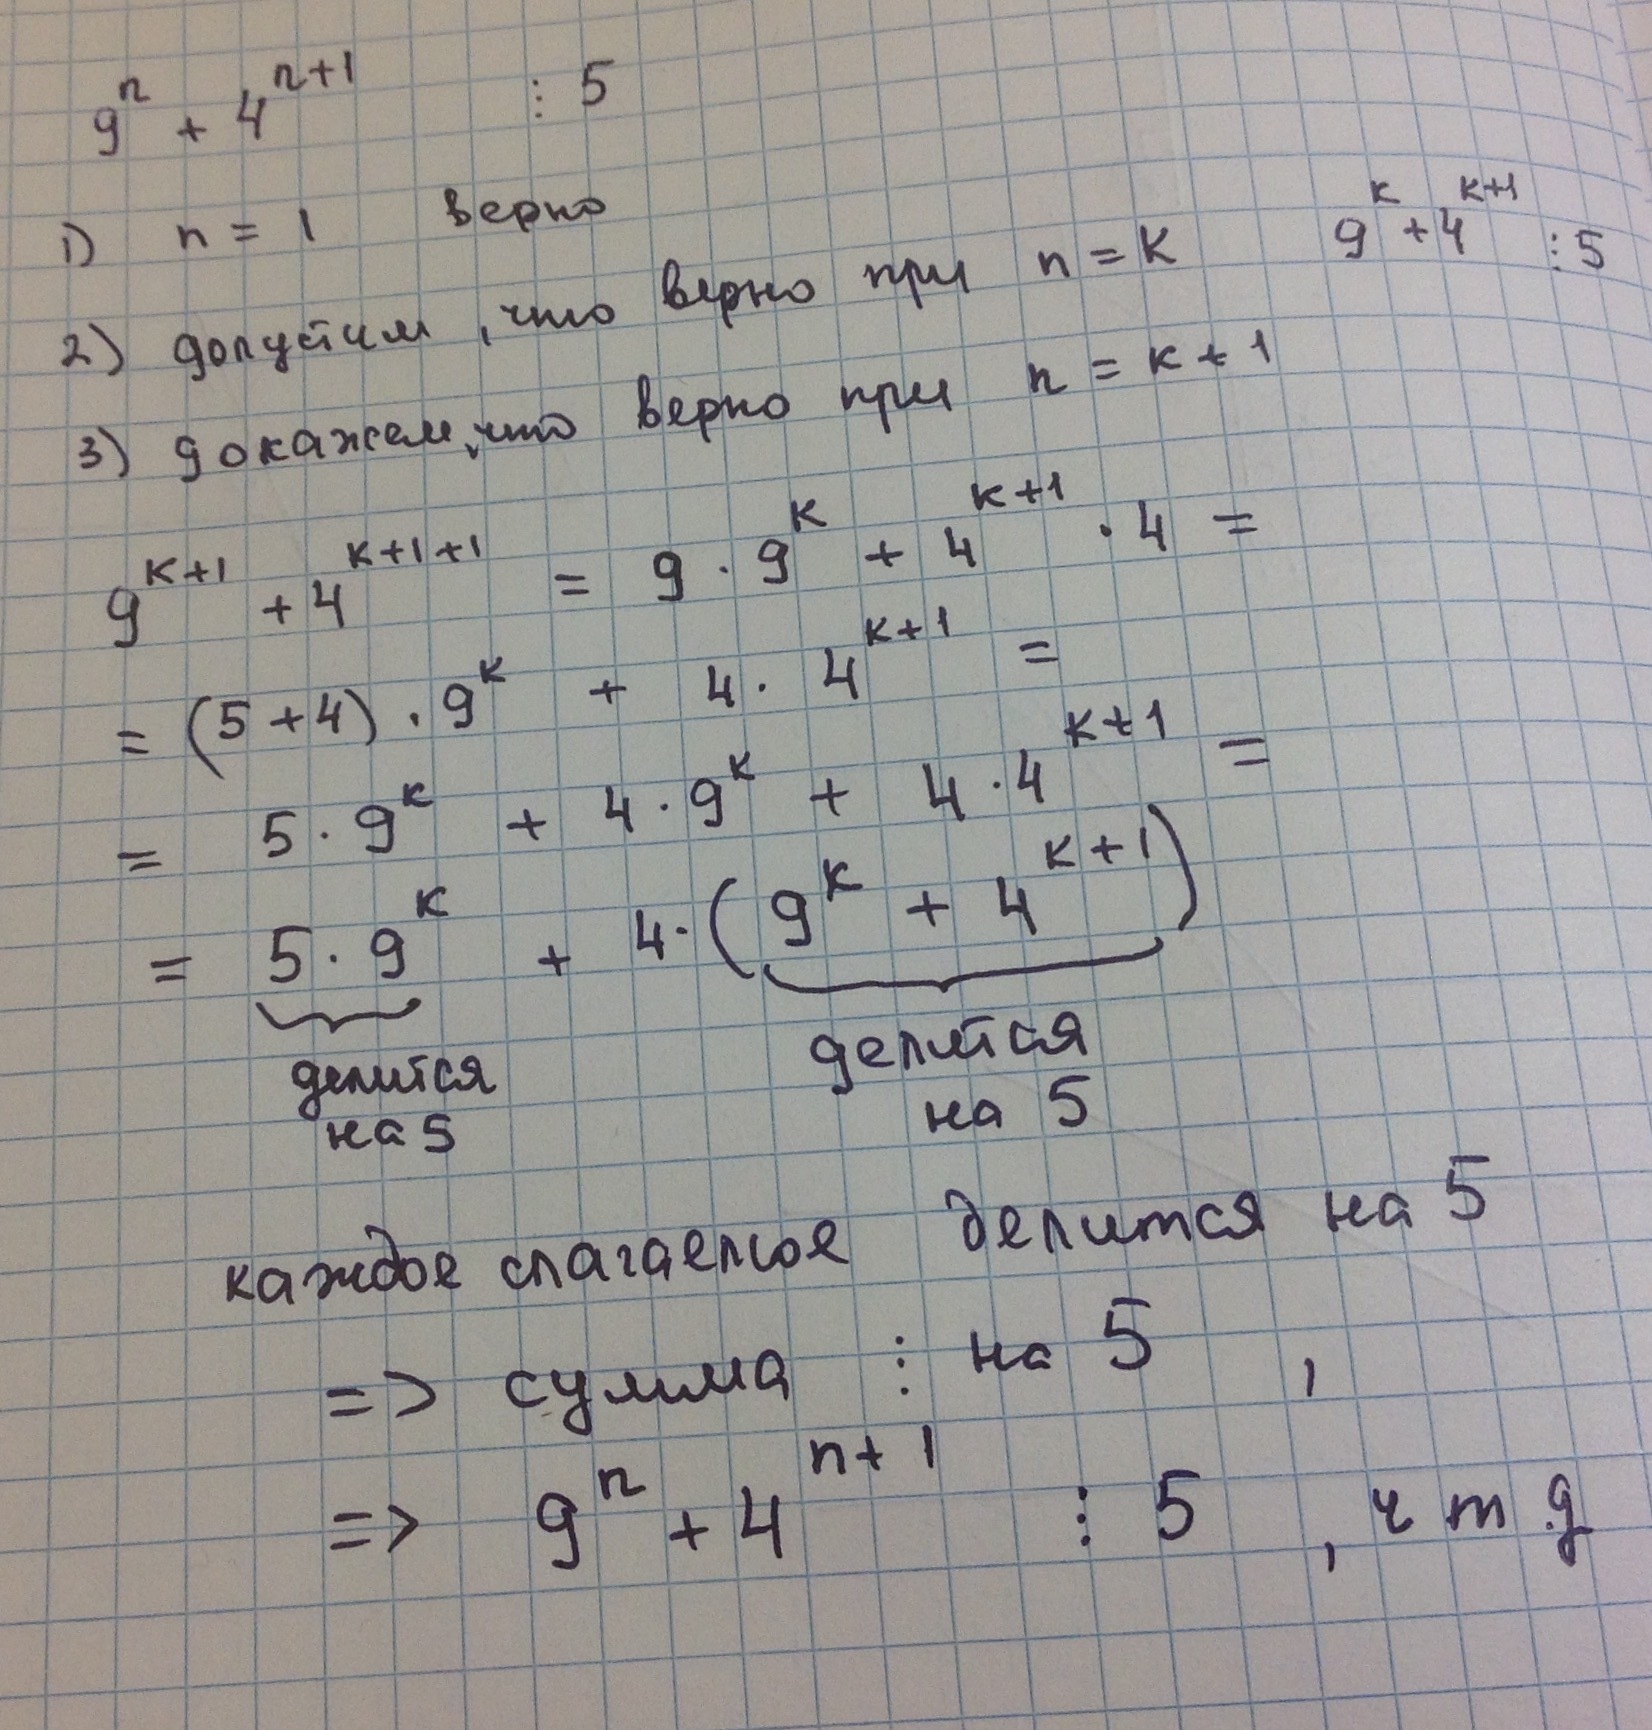 9ⁿ + 4ⁿ⁺¹ ⋮ 5
1) n = 1 верно
2) допустим, что верно при n = k 9ᵏ + 4ᵏ⁺¹ ⋮ 5
3) докажем, что верно при n = k + 1
9ᵏ⁺¹ + 4ᵏ⁺¹⁺¹ = 9 · 9ᵏ + 4ᵏ⁺¹ · 4 =
= (5 + 4) · 9ᵏ + 4 · 4ᵏ⁺¹ =
= 5 · 9ᵏ + 4 · 9ᵏ + 4 · 4ᵏ⁺¹ =
= 5 · 9ᵏ + 4 · (9ᵏ + 4ᵏ⁺¹)
делится на 5
делится на 5
каждое слагаемое делится на 5
=> сумма ⋮ на 5 ,
=> 9ⁿ + 4ⁿ⁺¹ ⋮ 5 , ч т д